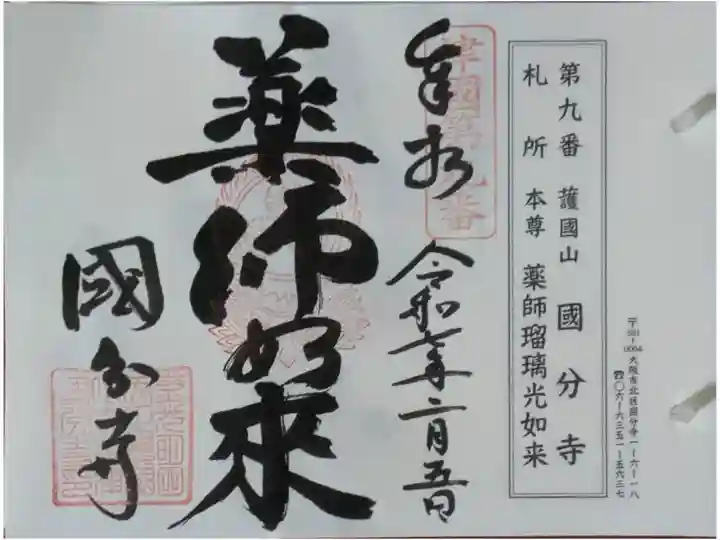 第九番 護國山 國分寺
札所 本尊 薬師瑠璃光如来
〒531-0064 大阪市北区国分寺一-六-一八
☎〇六-六三五一-五六三七
津國第九番
奉拝
令和七年二月五日
薬師如來
國分寺